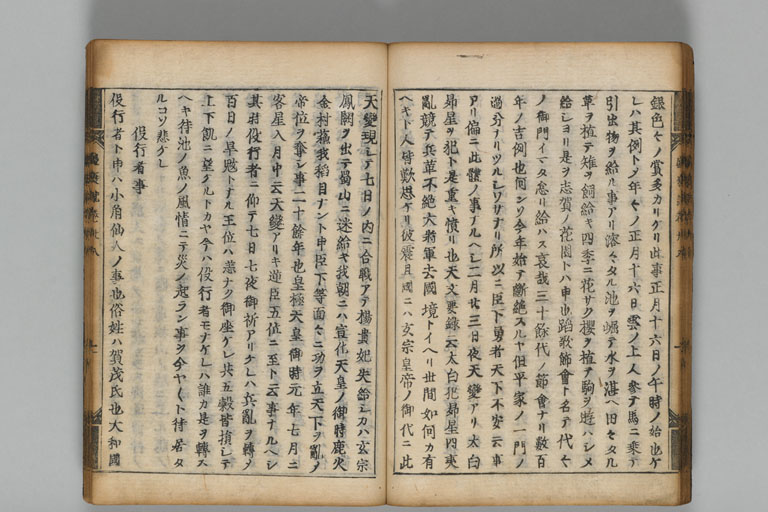 銀色々ノ賞多カリケリ此事正月十六日ノ午時ノ始也ケ
レハ其例トメ年々ノ正月十六日雲ノ上人参テ馬ニ乗テ
引出物ヲ給ル事アリ溶々タル池ヲ堀テ水ヲ湛ヘ田々タル
草ヲ植テ雉ヲ飼給キ四季ニ花サク櫻ヲ植テ駒ヲ遊ハシメ
給シヨリ是ヲ志賀ノ花園トハ申也蹈歌節會ト名テ代々
ノ御門イマタ怠リ給ハス哀哉三十餘代ノ節會ナリ数百
年ノ吉例也何ソ今年始テ断絶スルヤ但平家ノ一門ノ
過分ナリツルシワサナリ所以ニ臣下勇者天下不安云事
アリ偏ニ此體ノ事アルヘシ二月廿三日夜天變アリ太白
昴星ヲ犯ト是重キ憤リ也天文要録云太白犯昴星四夷
亂競テ兵革不絶大将軍去國境トイヘリ世間如何カ有
ヘキト人皆歎想ケリ彼震旦國ニハ玄宗皇帝ノ御代ニ此
天變現シテ七日ノ内ニ合戦アテ楊貴妃失命シカハ玄宗
鳳闕ヲ出テ蜀山ニ迷給キ我朝ニハ宣化天皇ノ御時鹿火
金村蘓我稻目ナント申臣下等面々ニ功ヲ立天下ヲ亂ノ
帝位ヲ奪シ事二十餘年也皇極天皇御時元年七月ニ
客星入月中云天變アリキ逆臣五位ニ至ト云事ナルヘシ
其時役行者ニ仰テ七日七夜御祈アリケレハ兵亂ヲ轉メ
百日ノ旱魃トナル王位ハ恙ナク御座ケレ共五穀皆損シテ
上下飢ニ望タルトカヤ今ハ役行者モナケレハ誰カ是ヲ轉ス
ヘキ待池ノ魚ノ風情ニテ災ノ起ラン事ヲ今ヤ〱ト待居タ
ルコソ悲ケレ
役行者事
役行者ト申ハ小角仙人ノ事也俗姓ハ賀茂氏也大和國